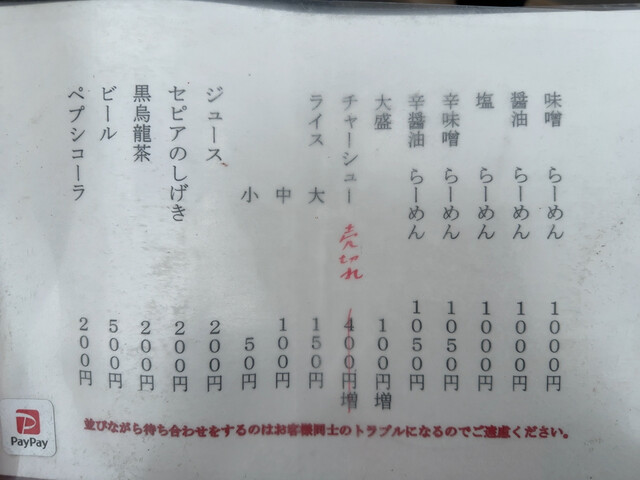 味噌 らーめん 1000円
醤油 らーめん 1000円
塩 らーめん 1000円
辛味噌 らーめん 1050円
辛醤油 らーめん 1050円
大盛 100円増
チャーシュー 売切れ 400円増
ライス 大 150円
中 100円
小 50円
ジュース、 200円
セピアのしげき 200円
黒烏龍茶 200円
ビール 500円
ペプシコーラ 200円
並びながら待ち合わせをするのはお客様同士のトラブルになるのでご遠慮ください。
PayPay